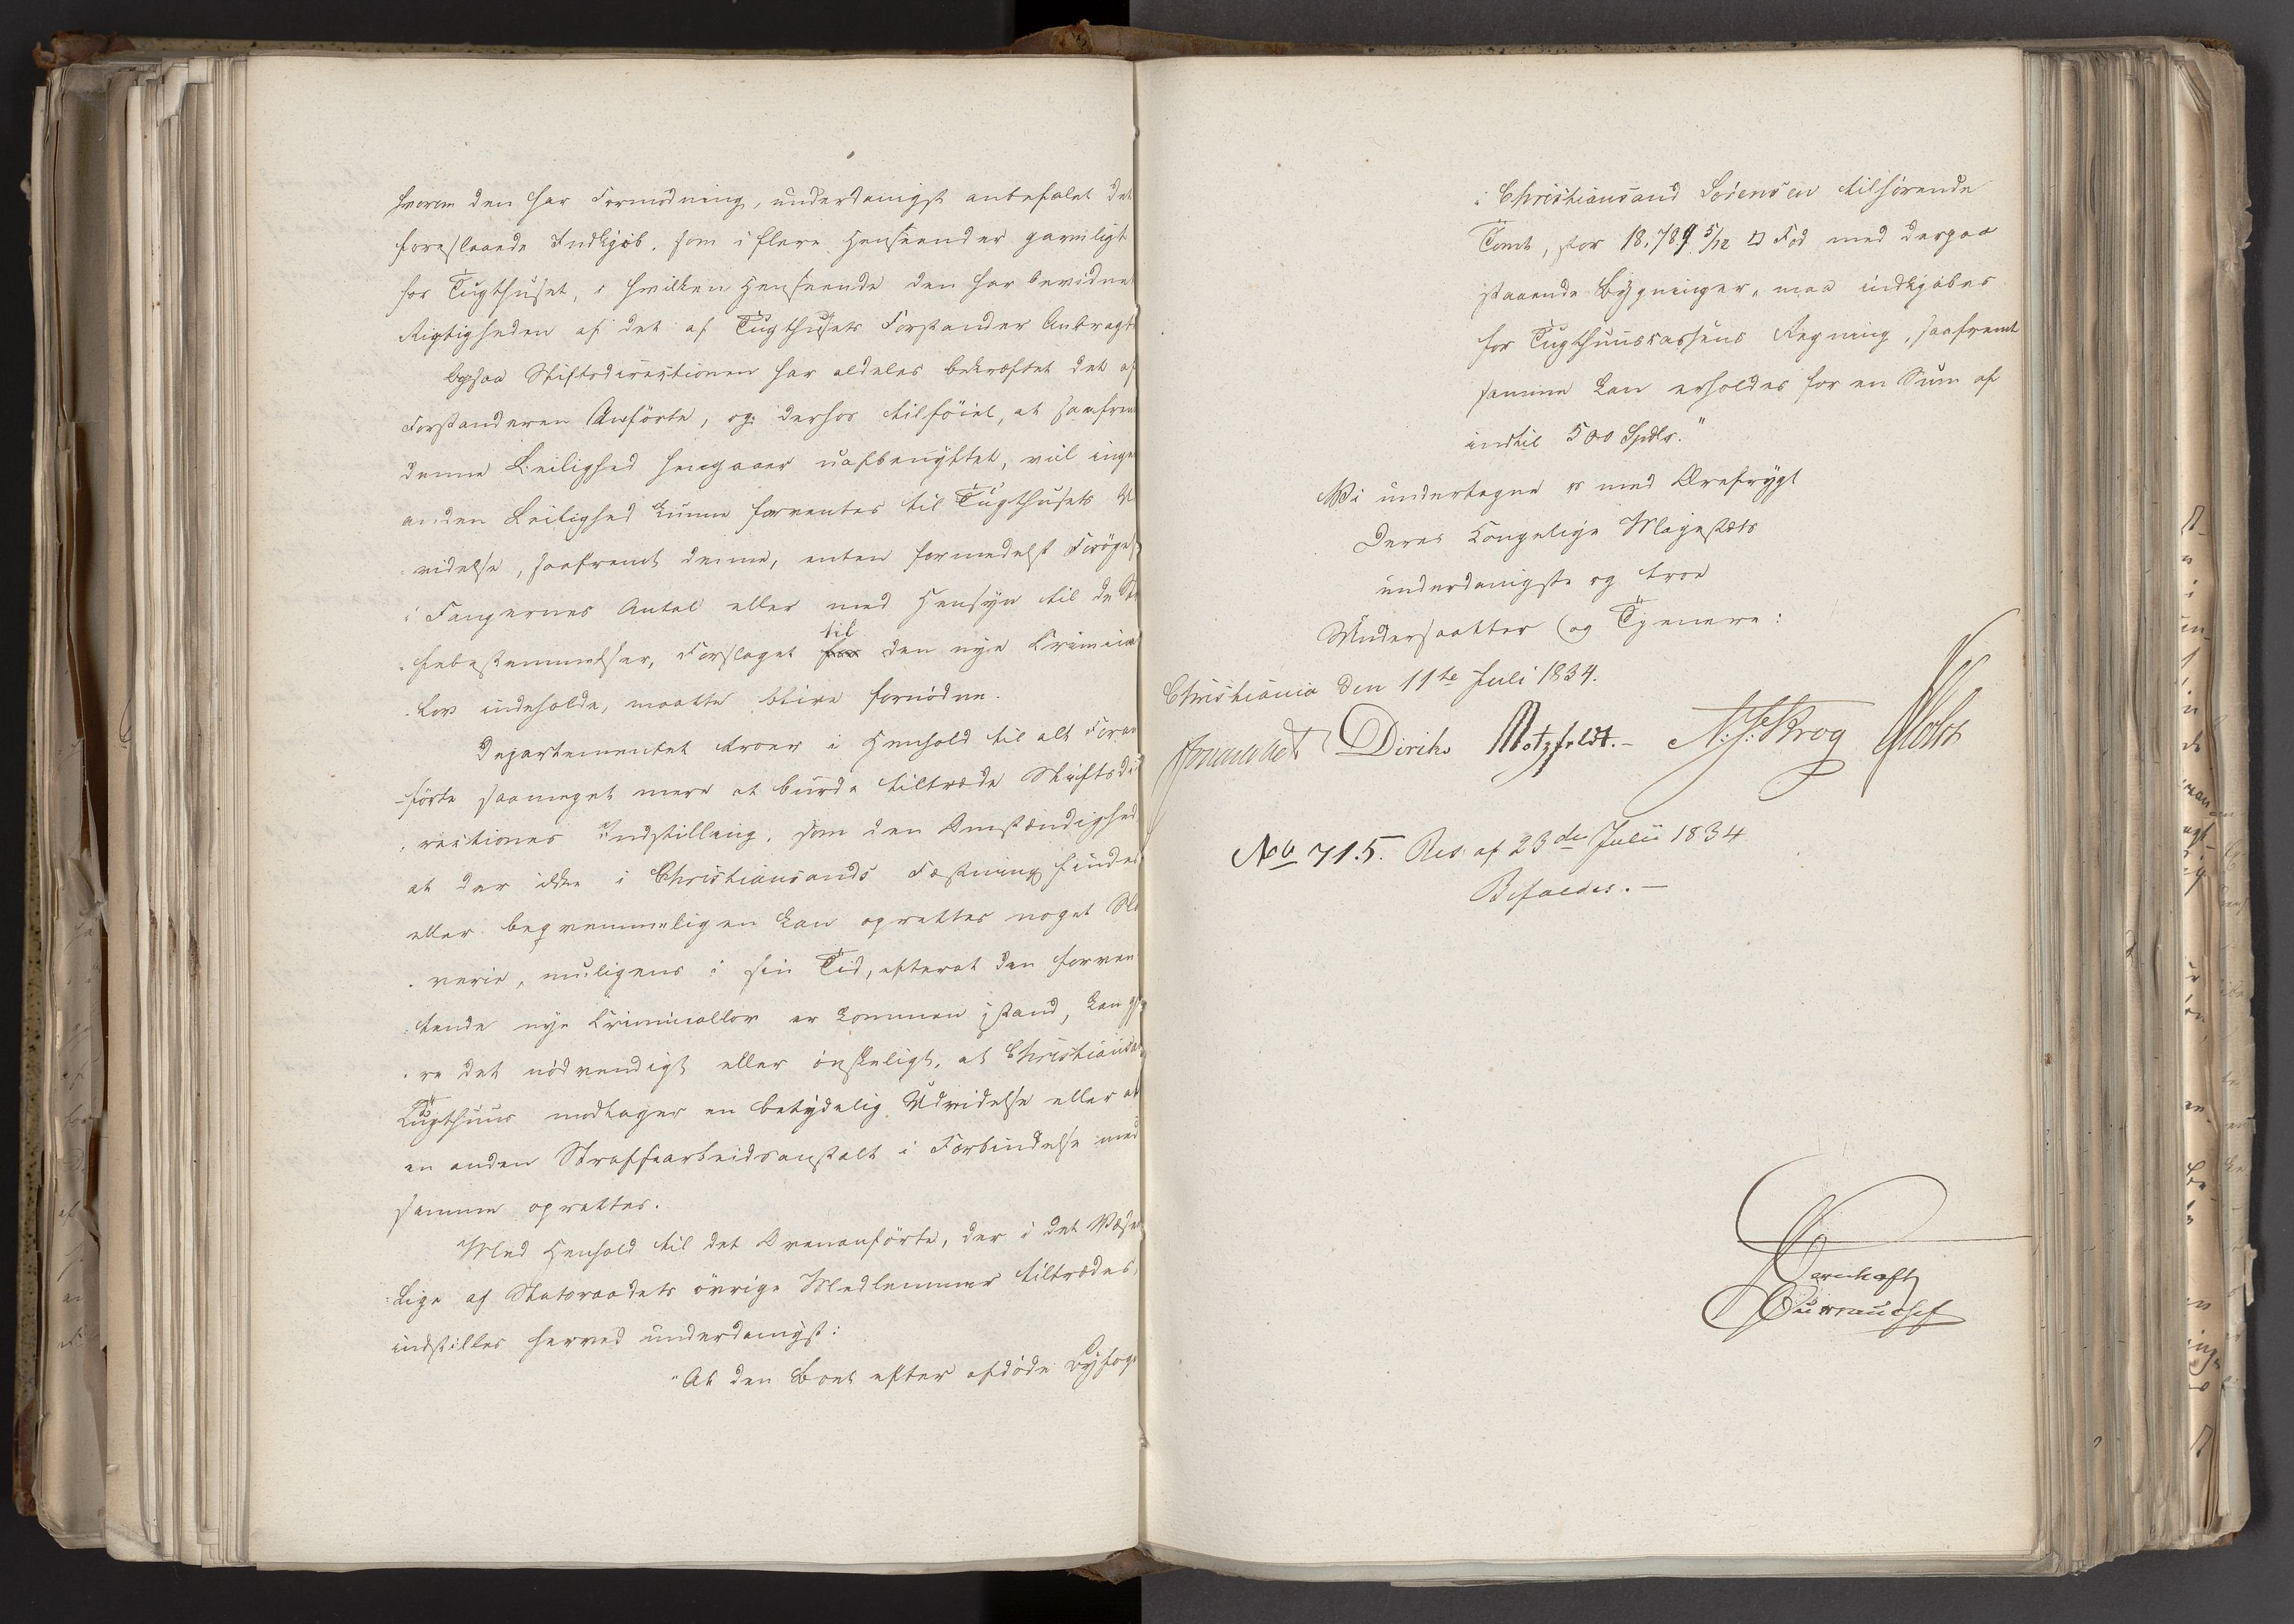 hvorom den har Formodning, underdanigst anbefalet det
foreslaaede Indkjøb, som i flere Henseender gavnligt
for Tugthuset, i hvilken Henseende den har bevidnet
Rigtigheden af det af Tugthusets Forstander Andragte
Ogsaa Stiftsdirectionen har aldeles bekræftet det af
Forstanderen Anførte, og derhos tilføiet, at saafremt
denne Leilighed hengaaer uafbenyttet, vil ingen
anden Leilighed kunne forventes til Tugthusets Ud
videlse, saafremt denne, enten formedelst Forøgelse
i Fangernes Antal eller med Hensyn til de Straf
febestemmelser, Forslaget til den nye Criminal
Lov indeholde, maatte blive fornøden.
Departementet troer i Henhold til alt Foran
førte saameget mere at burde tiltræde Stiftsdi
rectionens Indstilling, som den Omstændighed
at der ikke i Christiansands Fæstning findes
eller beqvemmeligen kan oprettes noget Sla
verie, muligens i sin Tid, efterat den forven
tende nye Criminallov er kommen istand, kan gjø
re det nødvendigt eller ønskeligt, at Christiansands
Tugthuus modtager en betydelig Udvidelse eller at
en anden Straffearbeidsanstalt i Forbindelse med
samme oprettes.
Med Henhold til det Ovenanførte, der i det Væsent
lige af Statsraadets øvrige Medlemmer tiltrædes,
indstilles herved underdanigst:
"At den Boet efter afdøde Byfoged
i Christiansand Sørensen tilhørende
Tomt, stor 18,789 5/12 □ Fod med derpaa
staaende Bygninger, maa indkjøbes
for Tugthuuscassens Regning, saafremt
samme kan erholdes for en Sum af
indtil 500 Spdlr."
Vi undertegne os med Ærefrygt
Deres Kongelige Majestæts
underdanigste og troe
Undersaatter og Tjenere:
Christiania den 11te Juli 1834.
Diriks Motzfeldt.- N. J. Krog Holst
No 715. Res. af 23de Julii 1834
Bifaldes.-